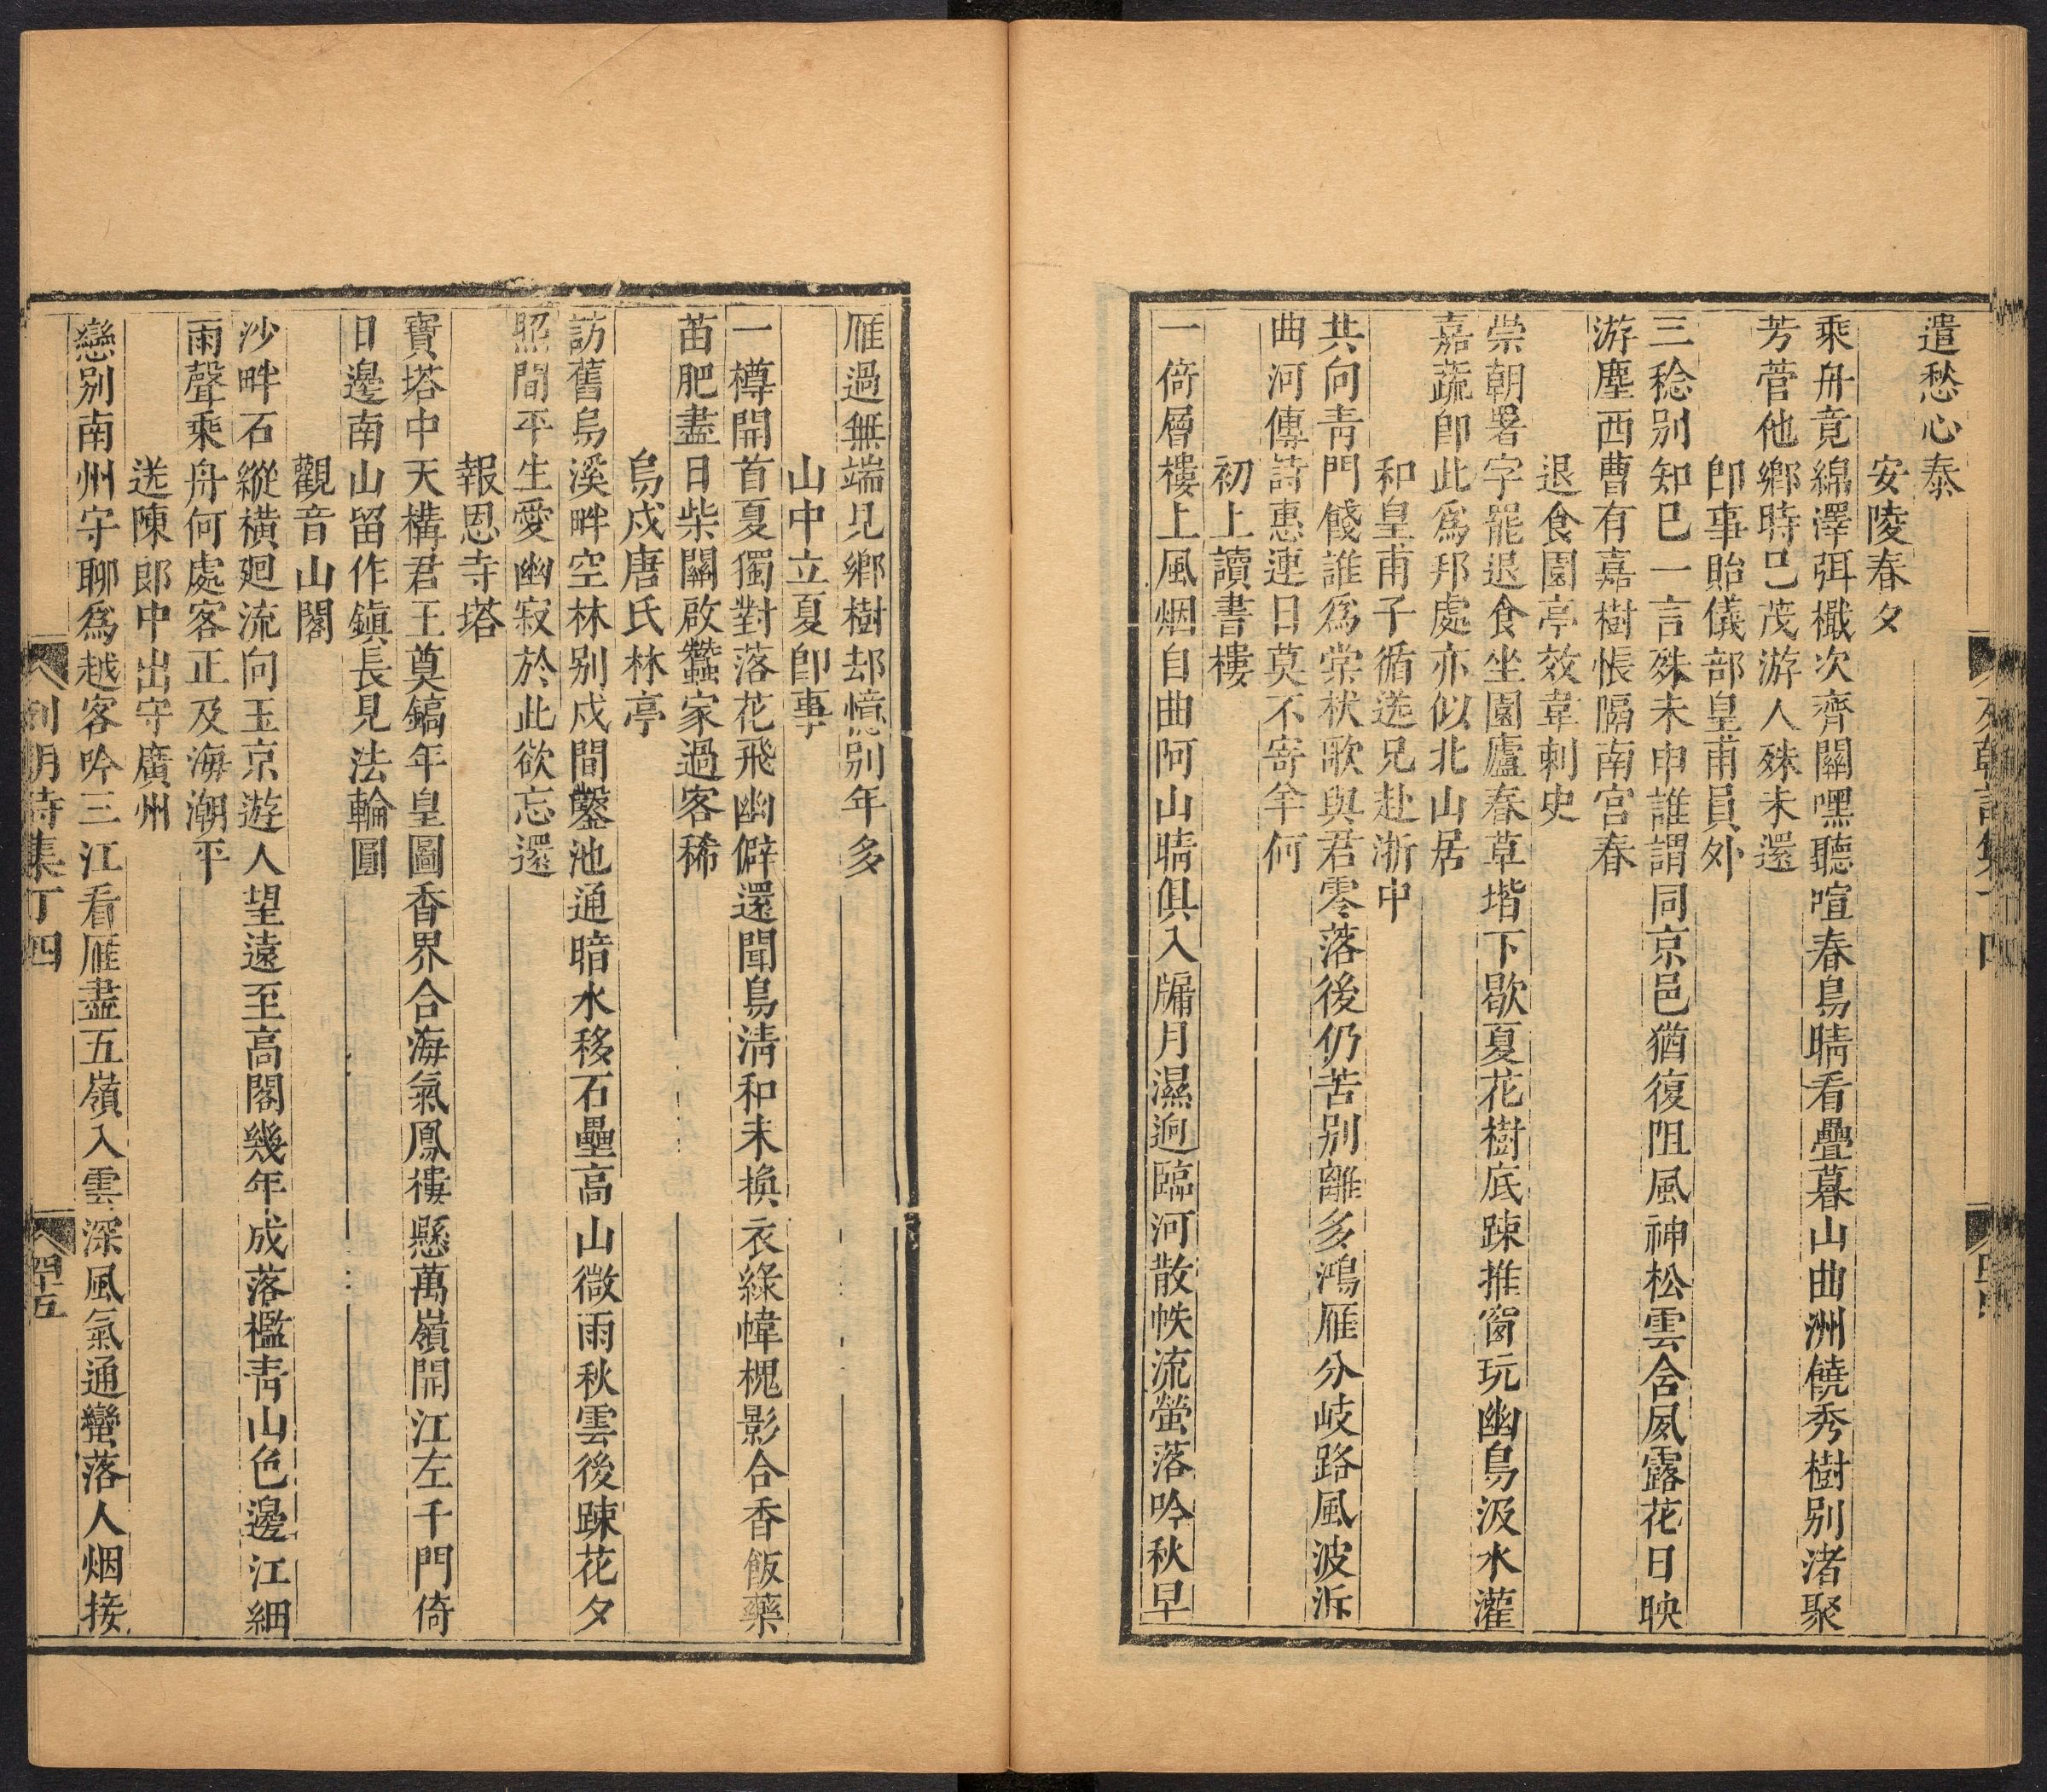 遣愁心泰
安陵春夕
乘舟竟綿澤弭檝次齊關嘿聽喧春鳥晴看疊暮山曲洲饒秀樹别渚聚
芳菅他鄉時已茂游人殊未還
即事貽儀部皇甫員外
三稔别知已一言殊未申誰謂同京邑猶復阻風神松雲含夙露花日映
游塵西曹有嘉樹悵隔南宫春
退食園亭效韋刺史
崇朝署字罷退食坐園廬春草堦下歇夏花樹底踈推窗玩幽鳥汲水灌
嘉蔬卽此為邦處亦似北山居
和皇甫子循送兄赴浙中
共向青門餞誰為棠杕歌與君零落後仍苦别離多鴻雁分岐路風波泝
曲河傳詩惠連日莫不寄羊何
初上讀書樓
一倚層樓上風烟自曲阿山晴俱入牖月濕迥臨河散帙流螢落吟秋早
雁過無端見鄉樹却憶别年多
山中立夏卽事
一樽開首夏獨對落花飛幽僻還聞鳥清和未換衣綠幃槐影合香飯藥
苗肥盡日柴關啟蠶家過客稀
烏戍唐氏林亭
訪舊烏溪畔空林别戍間鑿池通暗水移石壘高山微雨秋雲後踈花夕
照間平生愛幽寂於此欲忘還
報恩寺塔
寶塔中天構君王奠鎬年皇圖香界合海氣鳳樓懸萬嶺開江左千門倚
日邊南山留作鎮長見法輪圓
觀音山閣
沙畔石縱橫廻流向玉京遊人望遠至高閣幾年成落檻青山色邊江細
雨聲乘舟何處客正及海潮平
送陳郎中出守廣州
戀别南州守聊為越客吟三江看雁盡五嶺入雲深風氣通蠻落人烟接
列朝詩集丁四
四十五